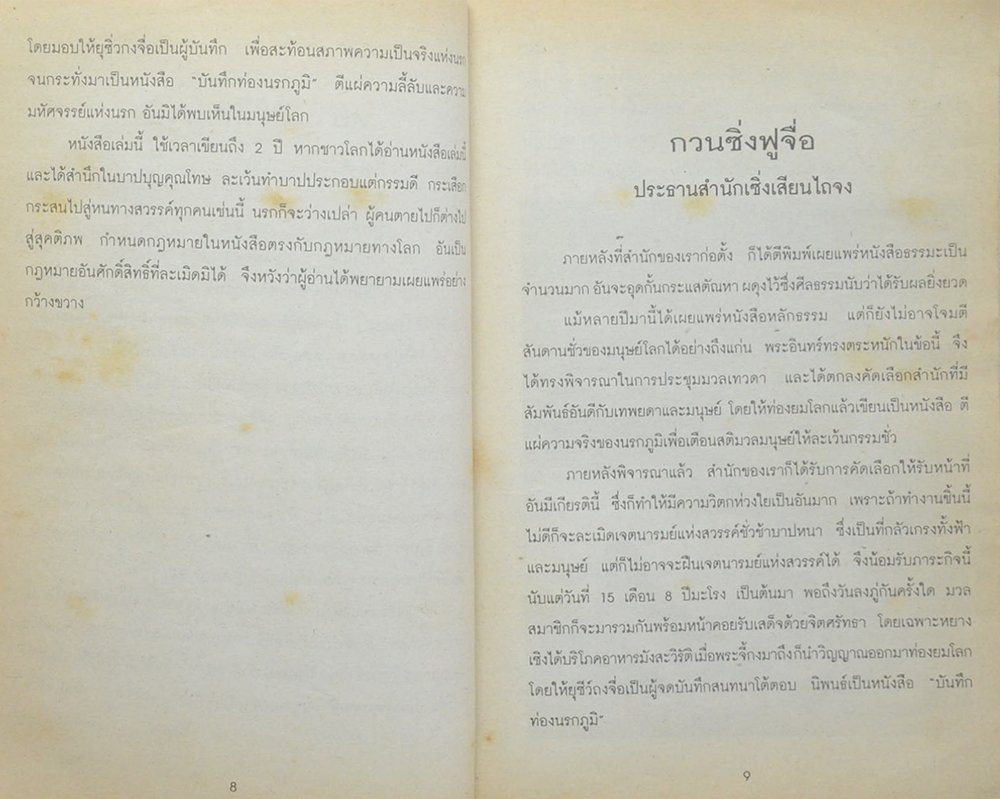 โดยมอบให้ยุซิ่วกงจื่อเป็นผู้บันทึก เพื่อสะท้อนสภาพความเป็นจริงแห่งนรก
จนกระทั่งมาเป็นหนังสือ “บันทึกท่องนรกภูมิ” ตีแผ่ความลี้ลับและความ
มหัศจรรย์แห่งนรก อันมิได้พบเห็นในมนุษย์โลก
หนังสือเล่มนี้ ใช้เวลาเขียนถึง 2 ปี หากชาวโลกได้อ่านหนังสือเล่มนี้
และได้สำนึกในบาปบุญคุณโทษ ละเว้นทำบาปประกอบแต่กรรมดี กระเสือก
กระสนไปสู่หนทางสวรรค์ทุกคนเช่นนี้ นรกก็จะว่างเปล่า ผู้คนตายไปก็ต่างไป
สู่สุคติภพ กำหนดกฎหมายในหนังสือตรงกับกฎหมายทางโลก อันเป็น
กฎหมายอันศักดิ์สิทธิ์ที่ละเมิดมิได้ จึงหวังว่าผู้อ่านได้พยายามเผยแพร่อย่าง
กว้างขวาง
8
กวนซิ่งฟูจื่อ
ประธานสำนักเซิ่งเสียนไถจง
ภายหลังที่สำนักของเราก่อตั้ง ก็ได้ตีพิมพ์เผยแพร่หนังสือธรรมะเป็น
จำนวนมาก อันจะอุดกั้นกระแสตัณหา ผดุงไว้ซึ่งศีลธรรมนับว่าได้รับผลยิ่งยวด
แม้หลายปีมานี้ได้เผยแพร่หนังสือหลักธรรม แต่ก็ยังไม่อาจโจมตี
สันดานชั่วของมนุษย์โลกได้อย่างถึงแก่น พระอินทร์ทรงตระหนักในข้อนี้ จึง
ได้ทรงพิจารณาในการประชุมมวลเทวดา และได้ตกลงคัดเลือกสำนักที่มี
สัมพันธ์อันดีกับเทพยดาและมนุษย์ โดยให้ท่องยมโลกแล้วเขียนเป็นหนังสือ ตี
แผ่ความจริงของนรกภูมิเพื่อเตือนสติมวลมนุษย์ให้ละเว้นกรรมชั่ว
ภายหลังพิจารณาแล้ว สำนักของเราก็ได้รับการคัดเลือกให้รับหน้าที่
อันมีเกียรตินี้ ซึ่งก็ทำให้มีความวิตกห่วงใยเป็นอันมาก เพราะถ้าทำงานชิ้นนี้
ไม่ดีก็จะละเมิดเจตนารมย์แห่งสวรรค์ชั่วช้าบาปหนา ซึ่งเป็นที่กลัวเกรงทั้งฟ้า
และมนุษย์ แต่ก็ไม่อาจจะฝืนเจตนารมย์แห่งสวรรค์ได้ จึงน้อมรับภาระกิจนี้
นับแต่วันที่ 15 เดือน 8 ปีมะโรง เป็นต้นมา พอถึงวันลงภู่กันครั้งใด มวล
สมาชิกก็จะมารวมกันพร้อมหน้าคอยรับเสด็จด้วยจิตศรัทธา โดยเฉพาะหยาง
เซิงได้บริโภคอาหารมังสะวิรัติเมื่อพระจี้กงมาถึงก็นำวิญญาณออกมาท่องยมโลก
โดยให้ยุซีว์ถงจื่อเป็นผู้จดบันทึกสนทนาโต้ตอบ นิพนธ์เป็นหนังสือ “บันทึก
ท่องนรกภูมิ”
9